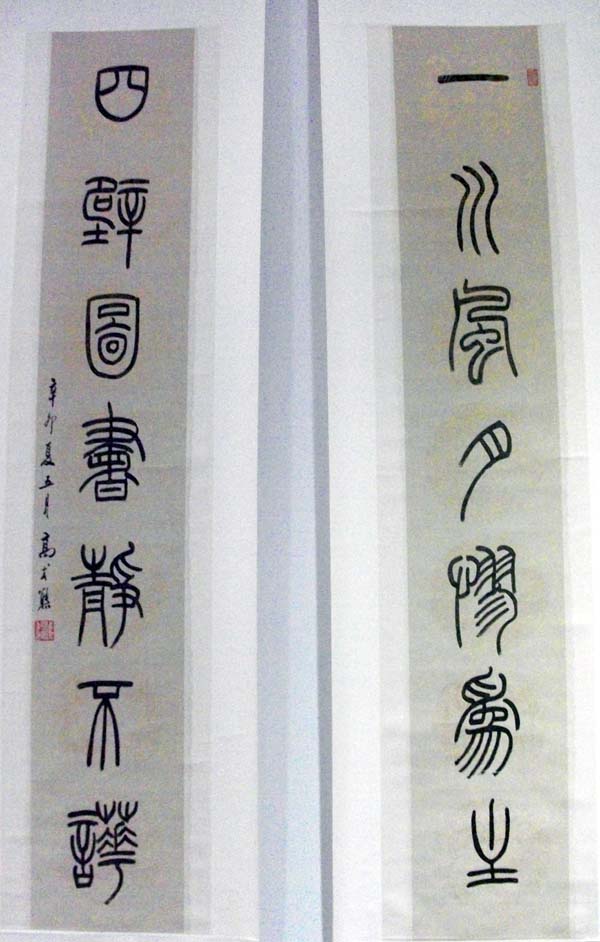 一川風月憀爲主
四壁圖書靜不譁
辛卯夏五月高式熊